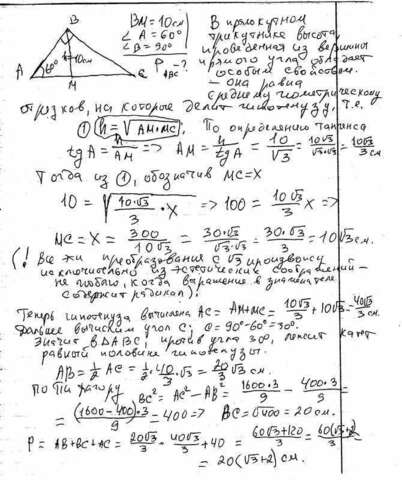 B
BM = 10см
∠A = 60°
∠B = 90°
P ABC - ?
A 60° 10см M C
В прямокутном
трикутнике высота,
проведенная из вершины
прямого угла обладает
особым свойством.
– она равна
среднему геометрическому
отрезков, на которые делит гипотенузу, т.е.
① h = √AM·MC. По определению тангенса
tg A = h/AM => AM = h/tg A = 10/√3 = 10√3/√3·√3 = 10√3/3 см
Тогда из ①, обозначив MC = X
10 = √(10·√3/3 · X) => 100 = 10√3/3 X =>
MC = X = 300/10√3 = 30·√3/√3·√3 = 30·√3/3 = 10√3 см.
(! Все эти преобразования с √3 произвожу
исключительно из эстетических соображений –
не люблю, когда выражение в знаменателе
содержит радикал).
Теперь гипотенуза вычислена AC = AM + MC = 10√3/3 + 10√3 = 40√3/3 см
Дальше вычислим угол C; C = 90° - 60° = 30°.
Значит в ΔABC, против угла 30°, лежит катет
равный половине гипотенузы.
AB = 1/2 AC = 1/2 · 40/3 · √3 = 20/3 √3 см.
по Пифагору BC² = AC² - AB² = 1600·3/9 - 400·3/9 =
= (1600-400)·3/9 = 400 => BC = √400 = 20 см.
P = AB + BC + AC = 20√3/3 - 40√3/3 + 40 = 60√3 + 120/3 = 60(√3+2)/3
= 20(√3+2) см.